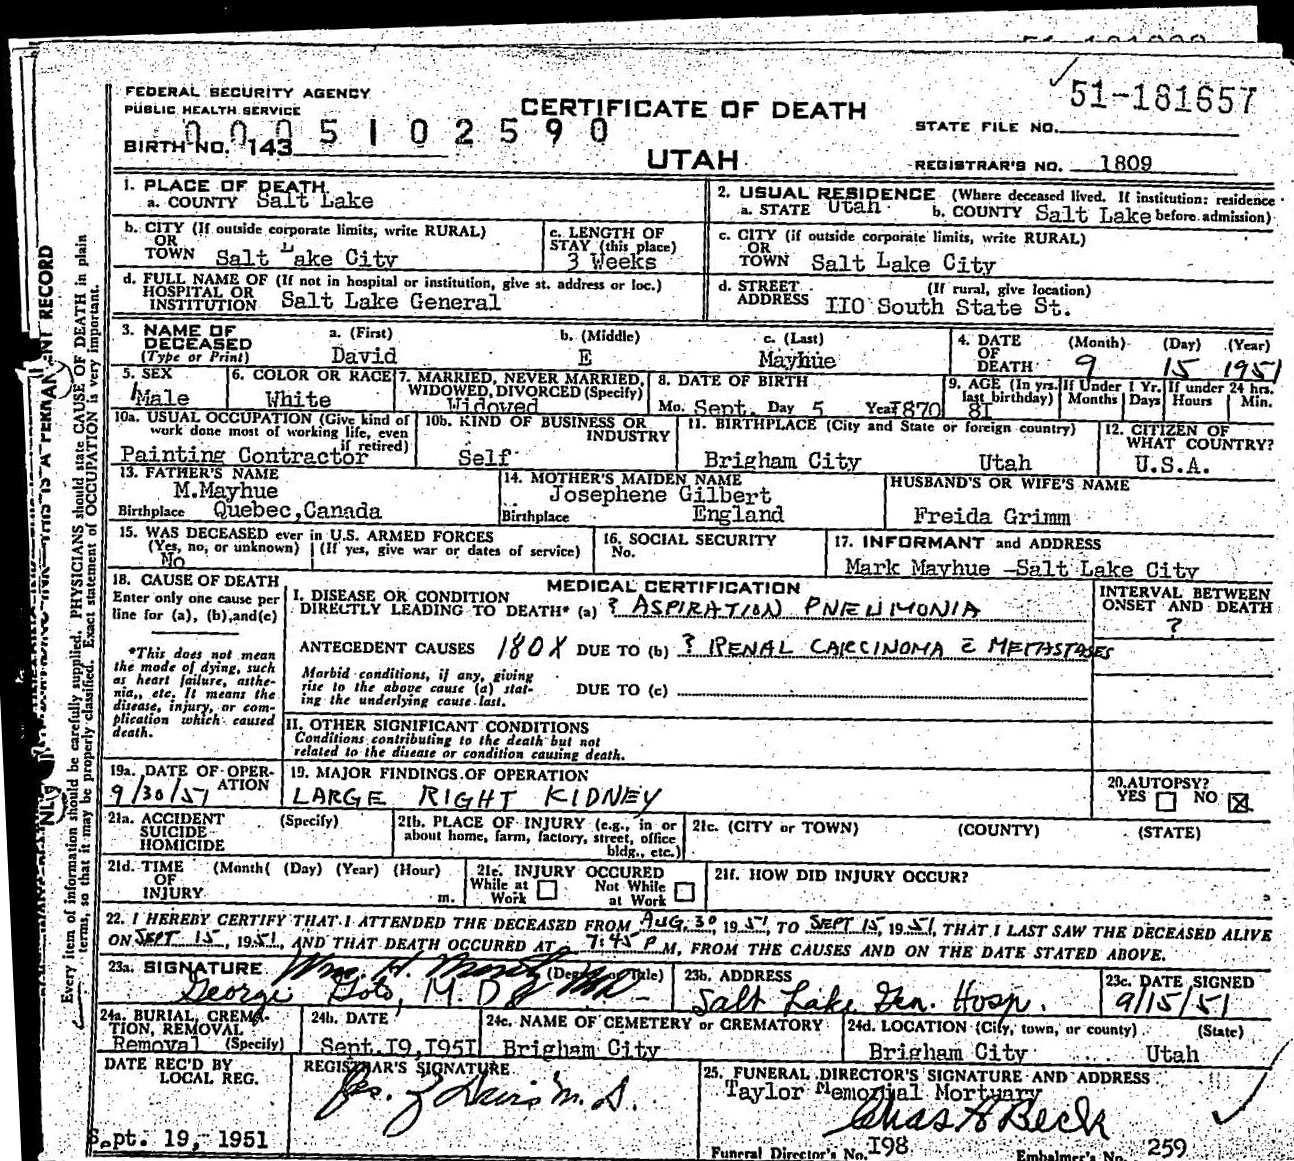 FEDERAL SECURITY AGENCY
PUBLIC HEALTH SERVICE
CERTIFICATE OF DEATH
51-181657
STATE FILE NO.
0005102590
BIRTH NO. 143
UTAH
REGISTRAR'S NO. 1809
1. PLACE OF DEATH
a. COUNTY Salt Lake
2. USUAL RESIDENCE (Where deceased lived. If institution: residence before admission)
a. STATE Utah b. COUNTY Salt Lake
b. CITY (If outside corporate limits, write RURAL)
OR
TOWN Salt Lake City
c. LENGTH OF
STAY (this place)
3 Weeks
c. CITY (if outside corporate limits, write RURAL)
OR
TOWN Salt Lake City
d. FULL NAME OF (If not in hospital or institution, give st. address or loc.)
HOSPITAL OR
INSTITUTION Salt Lake General
d. STREET (If rural, give location)
ADDRESS IIO South State St.
3. NAME OF
DECEASED
(Type or Print)
a. (First) b. (Middle) c. (Last)
David E Mayhue
4. DATE
OF
DEATH
(Month) (Day) (Year)
9 15 1951
5. SEX
Male
6. COLOR OR RACE
White
7. MARRIED, NEVER MARRIED,
WIDOWED, DIVORCED (Specify)
Widowed
8. DATE OF BIRTH
Mo. Sept. Day 5 Year I870
9. AGE (In yrs.
last birthday)
8I
If Under 1 Yr.
Months Days
If under 24 hrs.
Hours Min.
10a. USUAL OCCUPATION (Give kind of
work done most of working life, even
if retired)
Painting Contractor
10b. KIND OF BUSINESS OR
INDUSTRY
Self
11. BIRTHPLACE (City and State or foreign country)
Brigham City Utah
12. CITIZEN OF
WHAT COUNTRY?
U.S.A.
13. FATHER'S NAME
M.Mayhue
Birthplace Quebec,Canada
14. MOTHER'S MAIDEN NAME
Josephene Gilbert
Birthplace England
HUSBAND'S OR WIFE'S NAME
Freida Grimm
15. WAS DECEASED ever in U.S. ARMED FORCES
(Yes, no, or unknown) (If yes, give war or dates of service)
No
16. SOCIAL SECURITY
No.
17. INFORMANT and ADDRESS
Mark Mayhue -Salt Lake City
18. CAUSE OF DEATH
Enter only one cause per
line for (a), (b),and(c)
*This does not mean
the mode of dying, such
as heart failure, asthe-
nia,, etc. It means the
disease, injury, or com-
plication which caused
death.
MEDICAL CERTIFICATION
I. DISEASE OR CONDITION
DIRECTLY LEADING TO DEATH* (a) ? ASPIRATION PNEUMONIA
ANTECEDENT CAUSES 180X DUE TO (b) ? RENAL CARCINOMA c̄ METASTASES
Morbid conditions, if any, giving
rise to the above cause (a) stat-
ing the underlying cause last.
DUE TO (c)
II. OTHER SIGNIFICANT CONDITIONS
Conditions contributing to the death but not
related to the disease or condition causing death.
INTERVAL BETWEEN
ONSET AND DEATH
?
19a. DATE OF OPER-
ATION
9/30/51
19. MAJOR FINDINGS OF OPERATION
LARGE RIGHT KIDNEY
20. AUTOPSY?
YES NO X
21a. ACCIDENT (Specify)
SUICIDE
HOMICIDE
21b. PLACE OF INJURY (e.g., in or
about home, farm, factory, street, office
bldg., etc.)
21c. (CITY or TOWN) (COUNTY) (STATE)
21d. TIME (Month( (Day) (Year) (Hour)
OF
INJURY m.
21e. INJURY OCCURED
While at Work
Not While at Work
21f. HOW DID INJURY OCCUR?
22. I HEREBY CERTIFY THAT I ATTENDED THE DECEASED FROM AUG. 30, 1951, TO SEPT 15, 1951, THAT I LAST SAW THE DECEASED ALIVE
ON SEPT 15, 1951, AND THAT DEATH OCCURED AT 7:45 P M, FROM THE CAUSES AND ON THE DATE STATED ABOVE.
23a. SIGNATURE (Degree or Title)
Wm. H.
George Goto, M.D.
23b. ADDRESS
Salt Lake Gen. Hosp.
23c. DATE SIGNED
9/15/51
24a. BURIAL, CREMA-
TION, REMOVAL
Removal (Specify)
24b. DATE
Sept.I9,I95I
24c. NAME OF CEMETERY or CREMATORY
Brigham City
24d. LOCATION (City, town, or county) (State)
Brigham City Utah
DATE REC'D BY
LOCAL REG.
Sept. 19, 1951
REGISTRAR'S SIGNATURE
25. FUNERAL DIRECTOR'S SIGNATURE AND ADDRESS
Taylor Memorial Mortuary
Chas A Beck
Funeral Director's No. I98 Embalmer's No. 259
Every item of information should be carefully supplied. PHYSICIANS should state CAUSE OF DEATH in plain
terms, so that it may be properly classified. Exact statement of OCCUPATION is very important.
THIS IS A PERMANENT RECORD